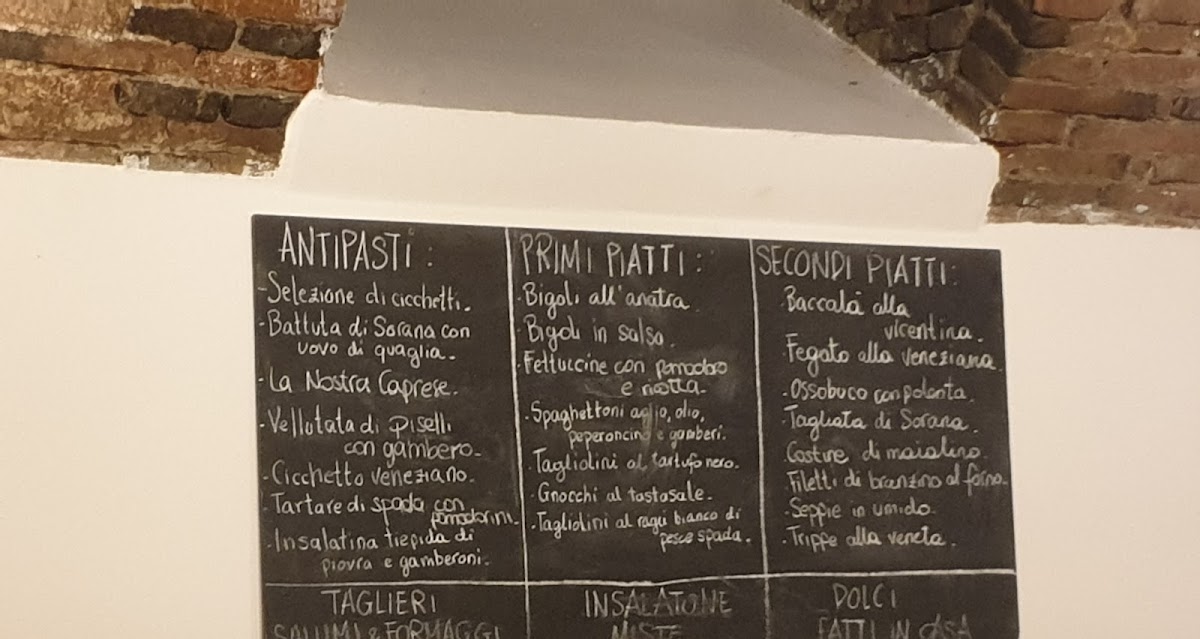 ANTIPASTI:
-Selezione di cicchetti.
-Battuta di Sorana con
uovo di quaglia.
-La Nostra Caprese.
-Vellutata di Piselli
con gambero.
-Cicchetto veneziano.
-Tartare di spada con
pomodorini.
-Insalatina tiepida di
piovra e gamberoni.
PRIMI PIATTI:
-Bigoli all'anatra.
-Bigoli in salsa.
-Fettuccine con pomodoro
e ricotta.
-Spaghettoni aglio, olio,
peperoncino e gamberi.
-Tagliolini al tartufo nero.
-Gnocchi al tastasale.
-Tagliolini al ragù bianco di
pesce spada.
SECONDI PIATTI:
-Baccalà alla
vicentina.
-Fegato alla veneziana.
-Ossobuco con polenta.
-Tagliata di Sorana.
-Costine di maialino.
-Filetti di branzino al forno.
-Seppie in umido.
-Trippe alla veneta.
TAGLIERI
SALUMI & FORMAGGI
INSALATONE
MISTE
DOLCI
FATTI IN CASA